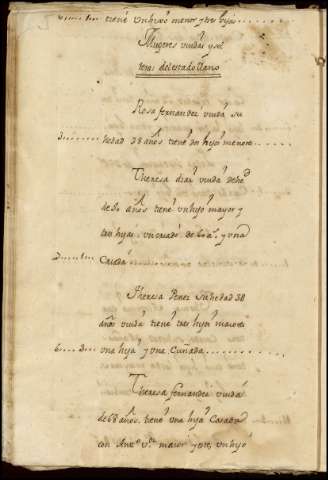 tiene Un hixo menor y tres hijas
Mugeres viudas y sol
teras del estado llano
Rosa fernandez viuda su
hedad 38 años tiene dos hijos menores
Theresa diaz viuda de hed
de 50 años tiene Un hijo mayor y
tres hijas, y una
Criada
Theresa Perez Su hedad 38
años viuda tiene tres hijos menores
una hija y una Cuñada
Theresa fernandez viuda
de 68 años, tiene una hija Casada
con maior y este, un hijo